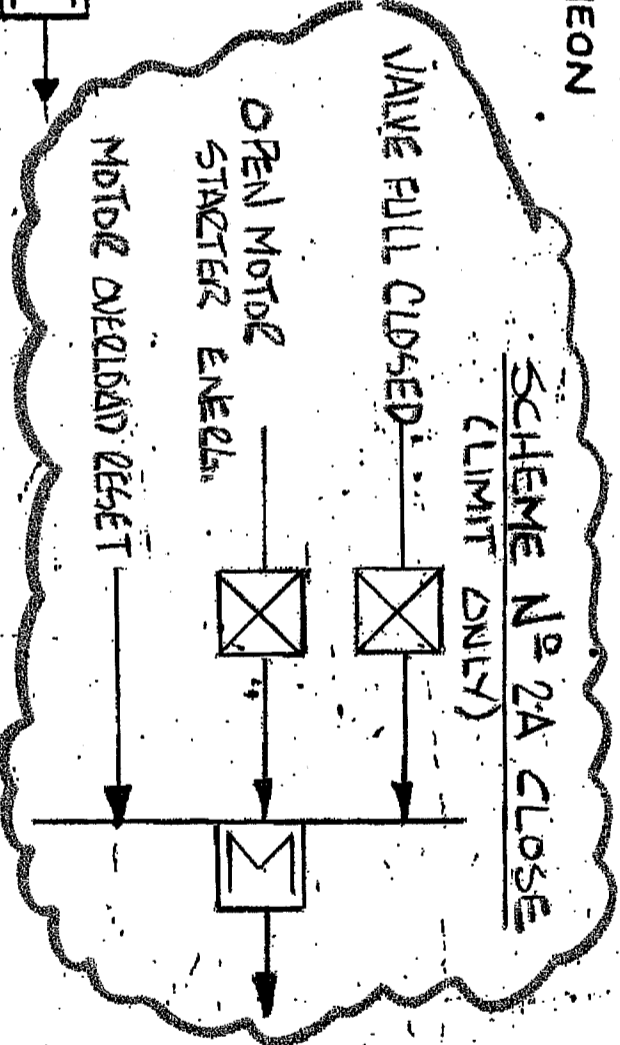 SCHEME Nº 2A CLOSE
(LIMIT ONLY)
VALVE FULL CLOSED
OPEN MOTOR
STARTER ENERG.
MOTOR OVERLOAD RESET
M